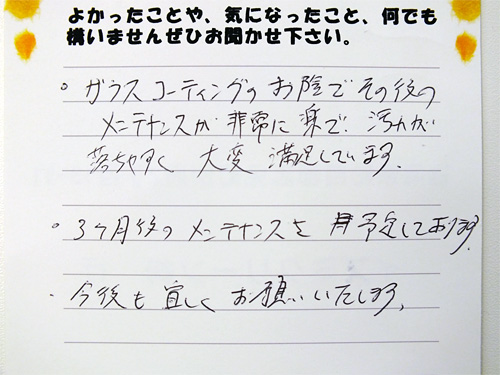 よかったことや、気になったこと、何でも
構いませんぜひお聞かせ下さい。
。ガラスコーティングのお陰でその後の
メンテナンスが非常に楽で汚れが
落ちやすく 大変 満足しています。
。3ヶ月後のメンテナンスを 予定しております。
・今後も宜しくお願いいたします。